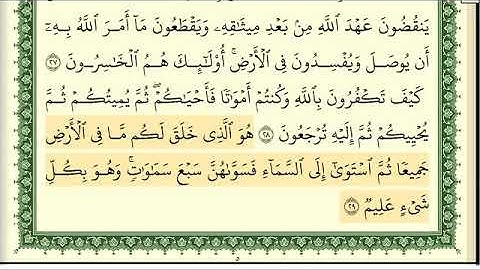 يَنقُضُونَ عَهْدَ ٱللَّهِ مِنۢ بَعْدِ مِيثَٰقِهِۦ وَيَقْطَعُونَ مَآ أَمَرَ ٱللَّهُ بِهِۦٓ
أَن يُوصَلَ وَيُفْسِدُونَ فِى ٱلْأَرْضِ ۚ أُو۟لَٰٓئِكَ هُمُ ٱلْخَٰسِرُونَ ٢٧
كَيْفَ تَكْفُرُونَ بِٱللَّهِ وَكُنتُمْ أَمْوَٰتًا فَأَحْيَٰكُمْ ۖ ثُمَّ يُمِيتُكُمْ ثُمَّ
يُحْيِيكُمْ ثُمَّ إِلَيْهِ تُرْجَعُونَ ٢٨ هُوَ ٱلَّذِى خَلَقَ لَكُم مَّا فِى ٱلْأَرْضِ
جَمِيعًا ثُمَّ ٱسْتَوَىٰٓ إِلَى ٱلسَّمَآءِ فَسَوَّىٰهُنَّ سَبْعَ سَمَٰوَٰتٍ ۚ وَهُوَ بِكُلِّ
شَىْءٍ عَلِيمٌ ٢٩